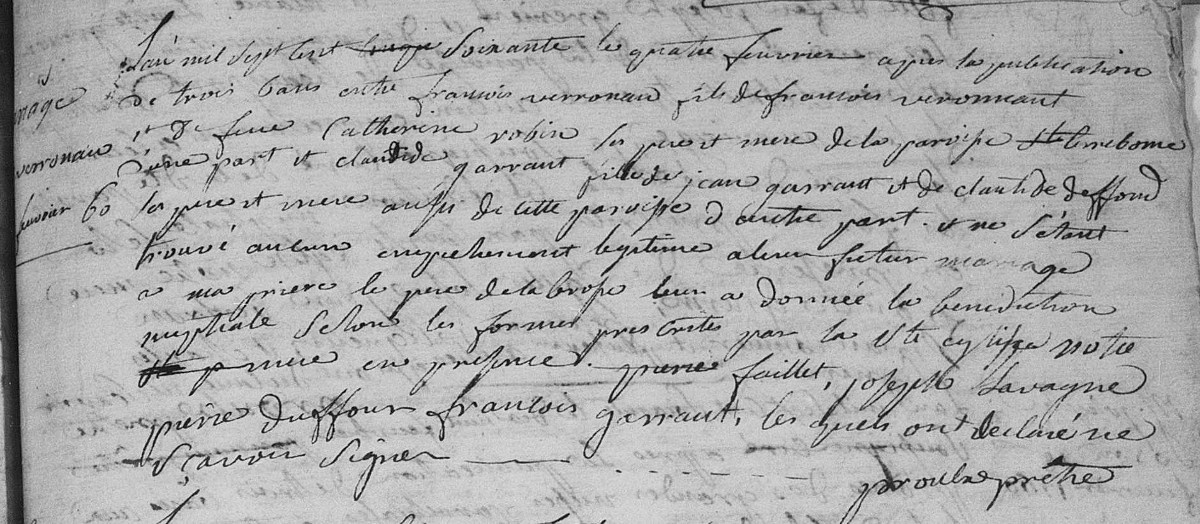 L'an mil sept cent cinque soixante le quatre feuvrier apres la publication
de trois bans entre francois verronau fils de francois veronneaut
et de feue Catherine robin les pere et mere de la paroisse ste terrebonne
d'une part et claudide garraut fille de jean garraut et de clautide deffond
les pere et mere aussi de cette paroisse d'autre part. et ne s'étant
trouvé aucun empechement legitime a leur futur mariage
a ma priere le pere de la brosse leur a donnée la benediction
nuptiale selon les formes prescrites par la Ste eglise notre
mere en presence. pierre faillet, joseph Lavagne
pierre duffour francois garraut, les quels ont declaré ne
scavoir signer
proulx prêtre
mage
verronau
feuvrier 60